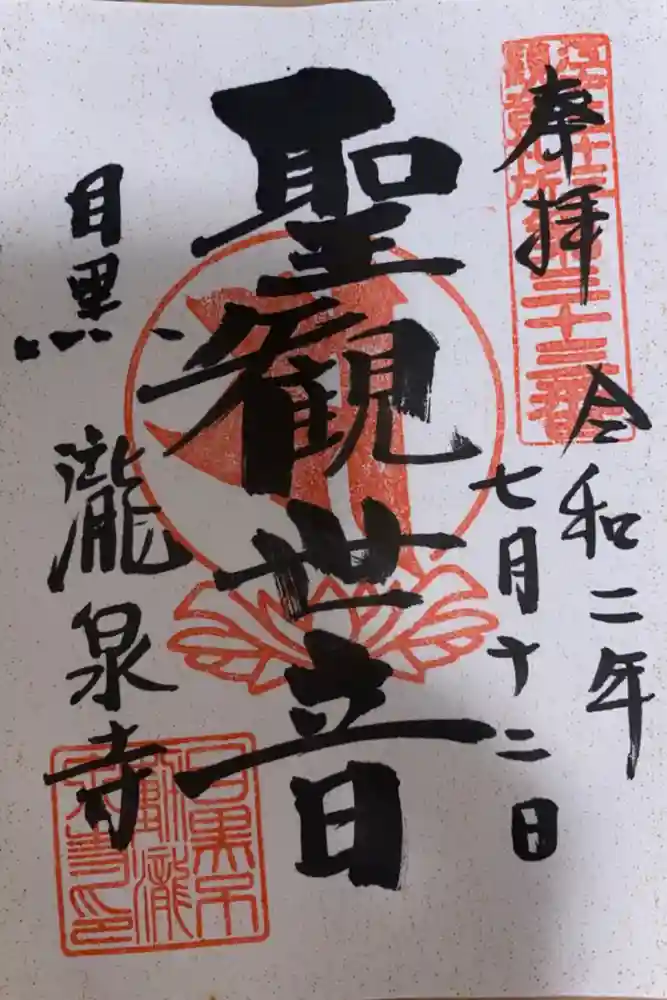 奉拝
令和二年
七月十二日
聖観世音
目黒
瀧泉寺
江戸三十三
観音札所第三十三番
目黒不
動瀧
泉寺印